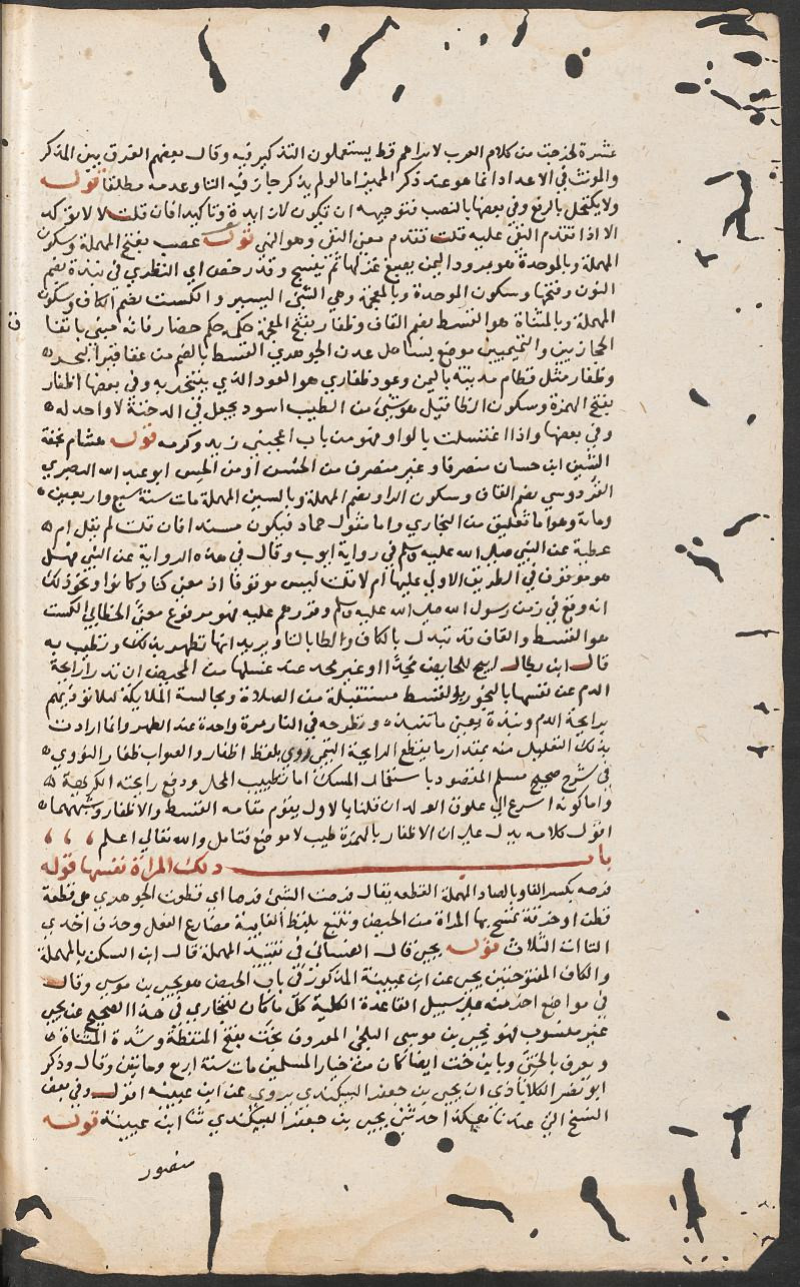 عشرة لخرجت من كلام العرب لانراهم قط يستعملون التذكير فيه وقال بعضهم الفرق بين المذكر
والمونث في الاعداد انما هو عند ذكر المميز اما لو لم يذكر جاز فيه التا وعدمه مطلقا قوله
ولا يكتحل بالرفع وفي بعضها بالنصب فتوجيهه ان تكون لا زايدة وتاكيد افان قلت لا لا توكد
الا اذا تقدم النفي عليه قلت تقدم معنى النفي وهو النهي قوله عصب بفتح المهملة وسكون
المهملة وبالموحدة هو برود اليمن يصبغ غزلها ثم ينسج وقد رخص اي التطيب في نبذة بضم
النون وفتحها وسكون الموحدة وبالمعجمة وهي الشي اليسير والكست بضم الكاف وسكون
المهملة وبالمثناة هو القسط بضم القاف وظفار بفتح المعجمة حكمه حكم حضار فانه مبني باتفا
الحجازيين والتميميين موضع بساحل عدن الجوهري القسط بالضم من عقاقير البحر
وظفار مثل قطام مدينة باليمن وعود ظفاري هو العود الذي يتبخر به وفي بعضها اظفار
بفتح الهمزة وسكون الظا قيل هو شي من الطيب اسود يجعل في الدخنة لا واحد له
وفي بعضها واذا اغتسلت بالواو فهو من باب اعجبني زيد وكرمه قوله هشام بخفة
الشين ابن حسان منصرفا وغير منصرف من الحسن او من الحس ابو عبد الله البصري
القردوسي بضم القاف وسكون الرا وبضم المهملة وبالسين المهملة مات سنة سبع واربعين
وماية وهو اما تعليق من البخاري واما مقول حماد فيكون مسندا فان قلت لم يقل ام
عطية عن النبي صلى الله عليه وسلم في رواية ايوب وقال في هذه الرواية عن النبي فهل
هو موقوف في الطريق الاولى عليها ام لا قلت ليس موقوفا اذ معنى كنا وكانوا ونحو ذلك
انه وقع في زمن رسول الله صلى الله عليه وسلم وقررهم عليه فهو مرفوع معنى الخطابي الكست
هو القسط والقاف قد تبدل بالكاف والطا بالتا ويريد انها تطهر بذلك وتطيب به
قال ابن بطال ابيح للحايض محدا او غير محد عند غسلها من المحيض ان تدرا رايحة
الدم عن نفسها بالبخور بالقسط مستقبلة من الصلاة ومجالسة الملايكة ليلا توذيهم
برايحة الدم ونبذة يعني ما تنبذه وتطرحه في النار مرة واحدة عند الطهر وانما ارادت
بذلك التقليل منه بمقدار ما يقطع الرايحة التيمي روي بلفظ اظفار والصواب ظفار النووي
في شرح صحيح مسلم المقصود باستعمال المسك اما تطييب المحل ودفع رايحته الكريهة
واما كونه اسرع الى علوق الولد ان قلنا بالاول يقوم مقامه القسط والاظفار وشبههما
اقول كلامه يدل على ان الاظفار بالهمزة طيب لا موضع فتامل والله تعالى اعلم
باب دلك المراة نفسها قوله
فرصة بكسر الفا وبالصاد المهملة القطعة يقال فرصت الشي فرصا اي قطعت الجوهري هي قطعة
قطن او خرقة تمسح بها المراة من الحيض وتتبع بلفظ الغايبة مضارع التفعل وحذف احدى
التاات الثلاث قوله يحيى قال الغساني في تقييد المهملة قال ابن السكن بالمهملة
والكاف المفتوحتين يحيى عن ابن عيينة المذكور في باب الحيض هو يحيى بن موسى وقال
في مواضع اخر منه على سبيل القاعدة الكلية كل ما كان للبخاري في هذا الصحيح عن يحيى
غير منسوب فهو يحيى بن موسى البلخي المعروف بخت بفتح المنقطة وشدة المثناة
ويعرف بالختي وبابن خت ايضا كان من خيار المسلمين مات سنة اربع وماتين وقال وذكر
ابو نصر الكلاباذي ان يحيى بن جعفر البيكندي يروي عن ابن عيينة اقول وفي بعض
النسخ التي عندنا بمكة حدثني يحيى بن جعفر البيكندي ثنا ابن عيينة قوله
منصور